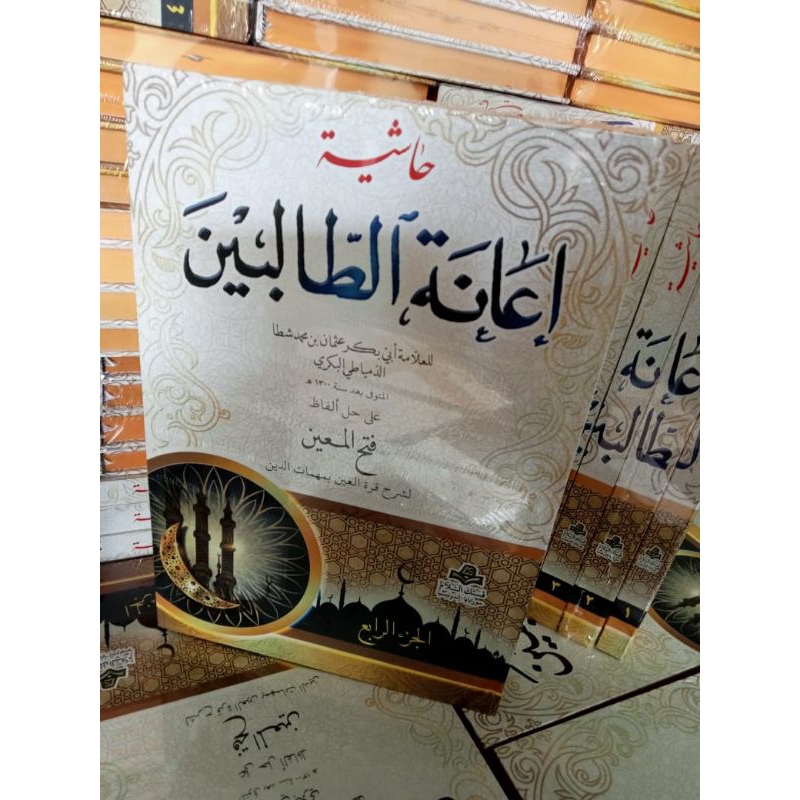 حاشية
إعانة الطالبين
للعلامة أبي بكر عثمان بن محمد شطا
الدمياطي البكري
المتوفى بعد سنة ١٣٠٠ هـ
على حل ألفاظ
فتح المعين
لشرح قرة العين بمهمات الدين
الجزء الرابع
إعانة
الطالبين
٣
٢
١
فتح المعين